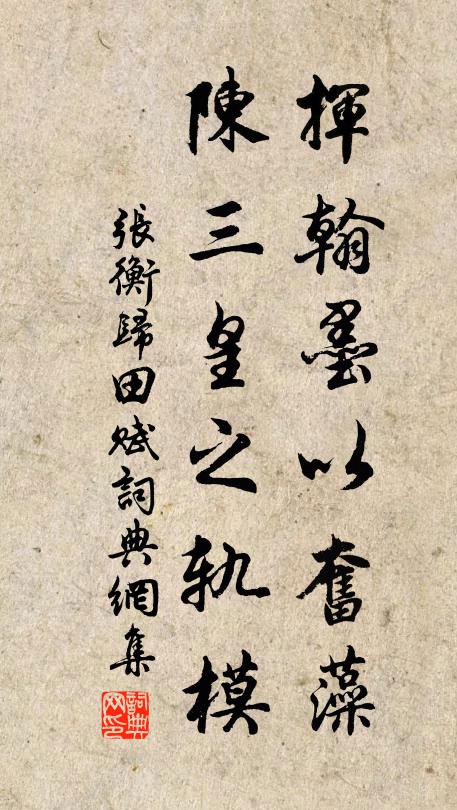 揮翰墨以奮藻
陳三皇之軌模
張衡歸田賦詞典網集
詞典网印